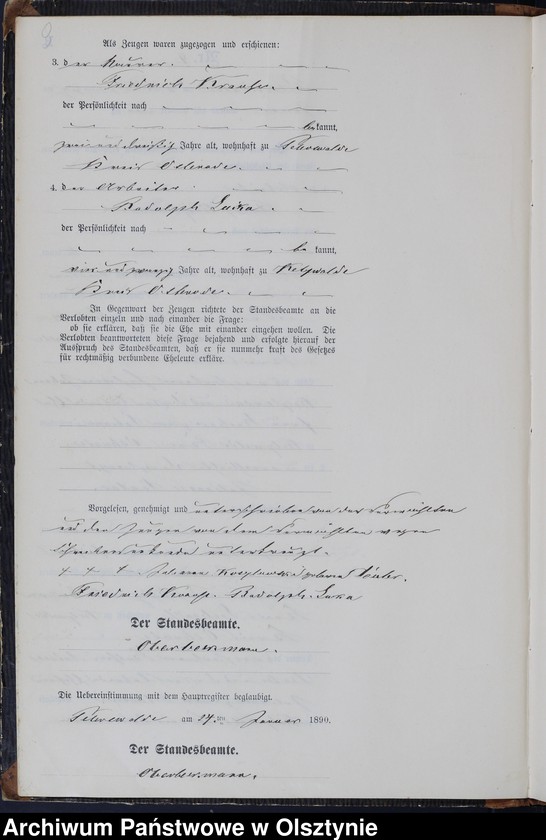 Als Zeugen waren zugezogen und erschienen:
3. der Maurer
Friedrich Krause
der Persönlichkeit nach
bekannt,
zwei und dreißig Jahre alt, wohnhaft zu
Kreis Osterode
4. der Arbeiter
Rudolph Luka
der Persönlichkeit nach
be kannt,
vier und zwanzig Jahre alt, wohnhaft zu
Kreis Osterode
In Gegenwart der Zeugen richtete der Standesbeamte an die
Verlobten einzeln und nach einander die Frage:
ob sie erklären, daß sie die Ehe mit einander eingehen wollen. Die
Verlobten beantworteten diese Frage bejahend und erfolgte hierauf der
Ausspruch des Standesbeamten, daß er sie nunmehr kraft des Gesetzes
für rechtmäßig verbundene Eheleute erkläre.
Vorgelesen, genehmigt und unterschrieben von der Vermählten
und den Zeugen von dem Vermählten wegen
Schreibensunkunde unterkreuzt.
+ + + geborene
Friedrich Krause. Rudolph Luka
Der Standesbeamte.
Oberbermann.
Die Uebereinstimmung mit dem Hauptregister beglaubigt.
am 27. ten Januar 1890.
Der Standesbeamte.
Oberbermann.
Archiwum Państwowe w Olsztynie